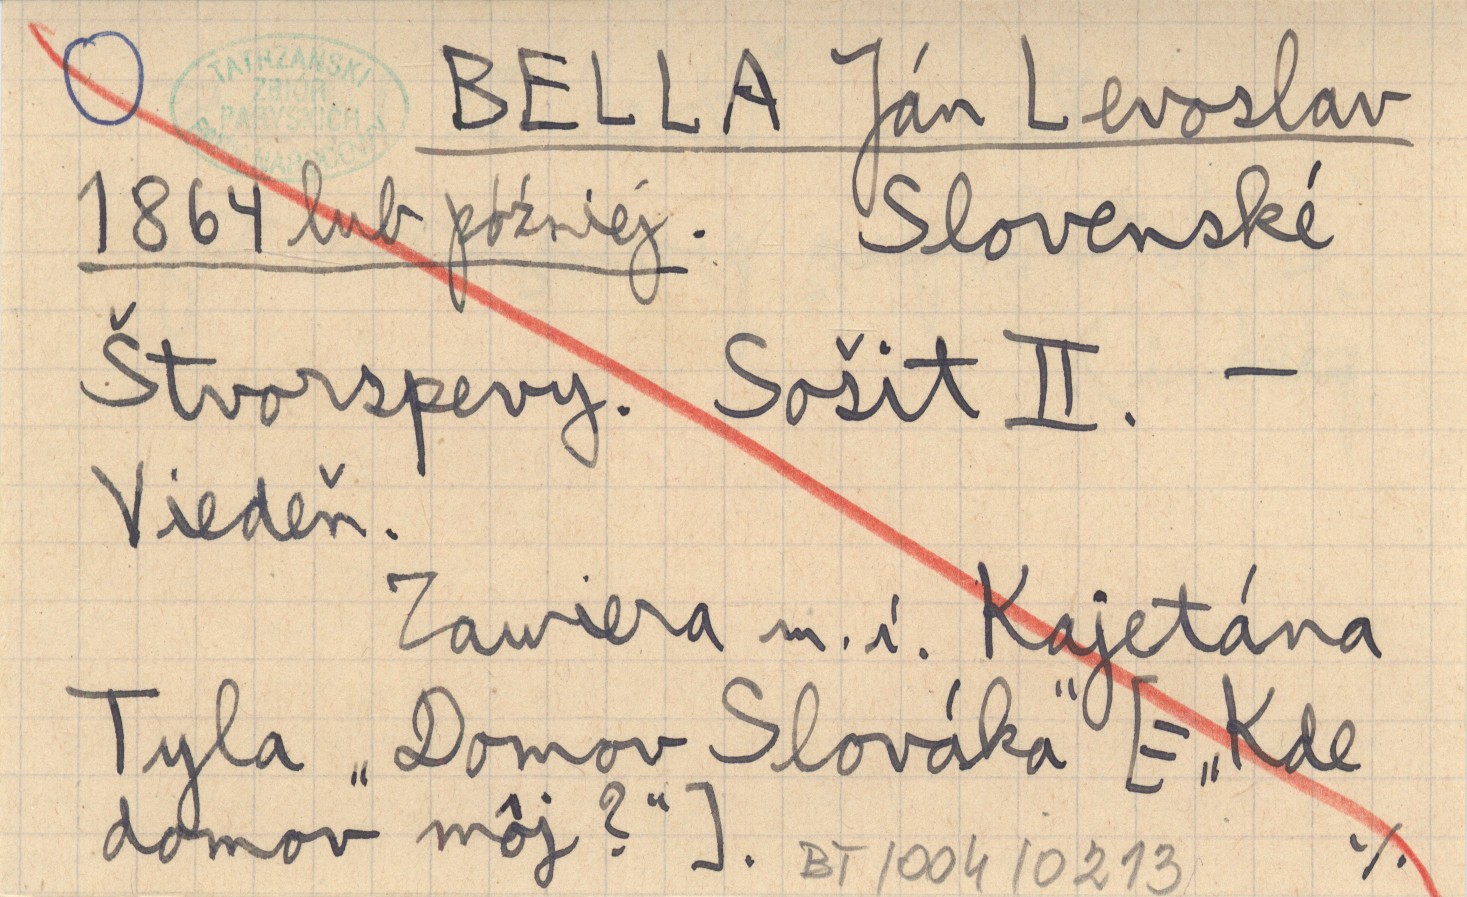 TATRZAŃSKI
ZBIÓR
PARYSKICH
BELLA Ján Levoslav
1864 lub później. Slovenské
Štvorspevy. Sošit II. —
Viedeň.
Zawiera m.i. Kajetána
Tyla „Domov Slováka“ [= „Kde
domov môj?“].
BT/004/0213
·/.